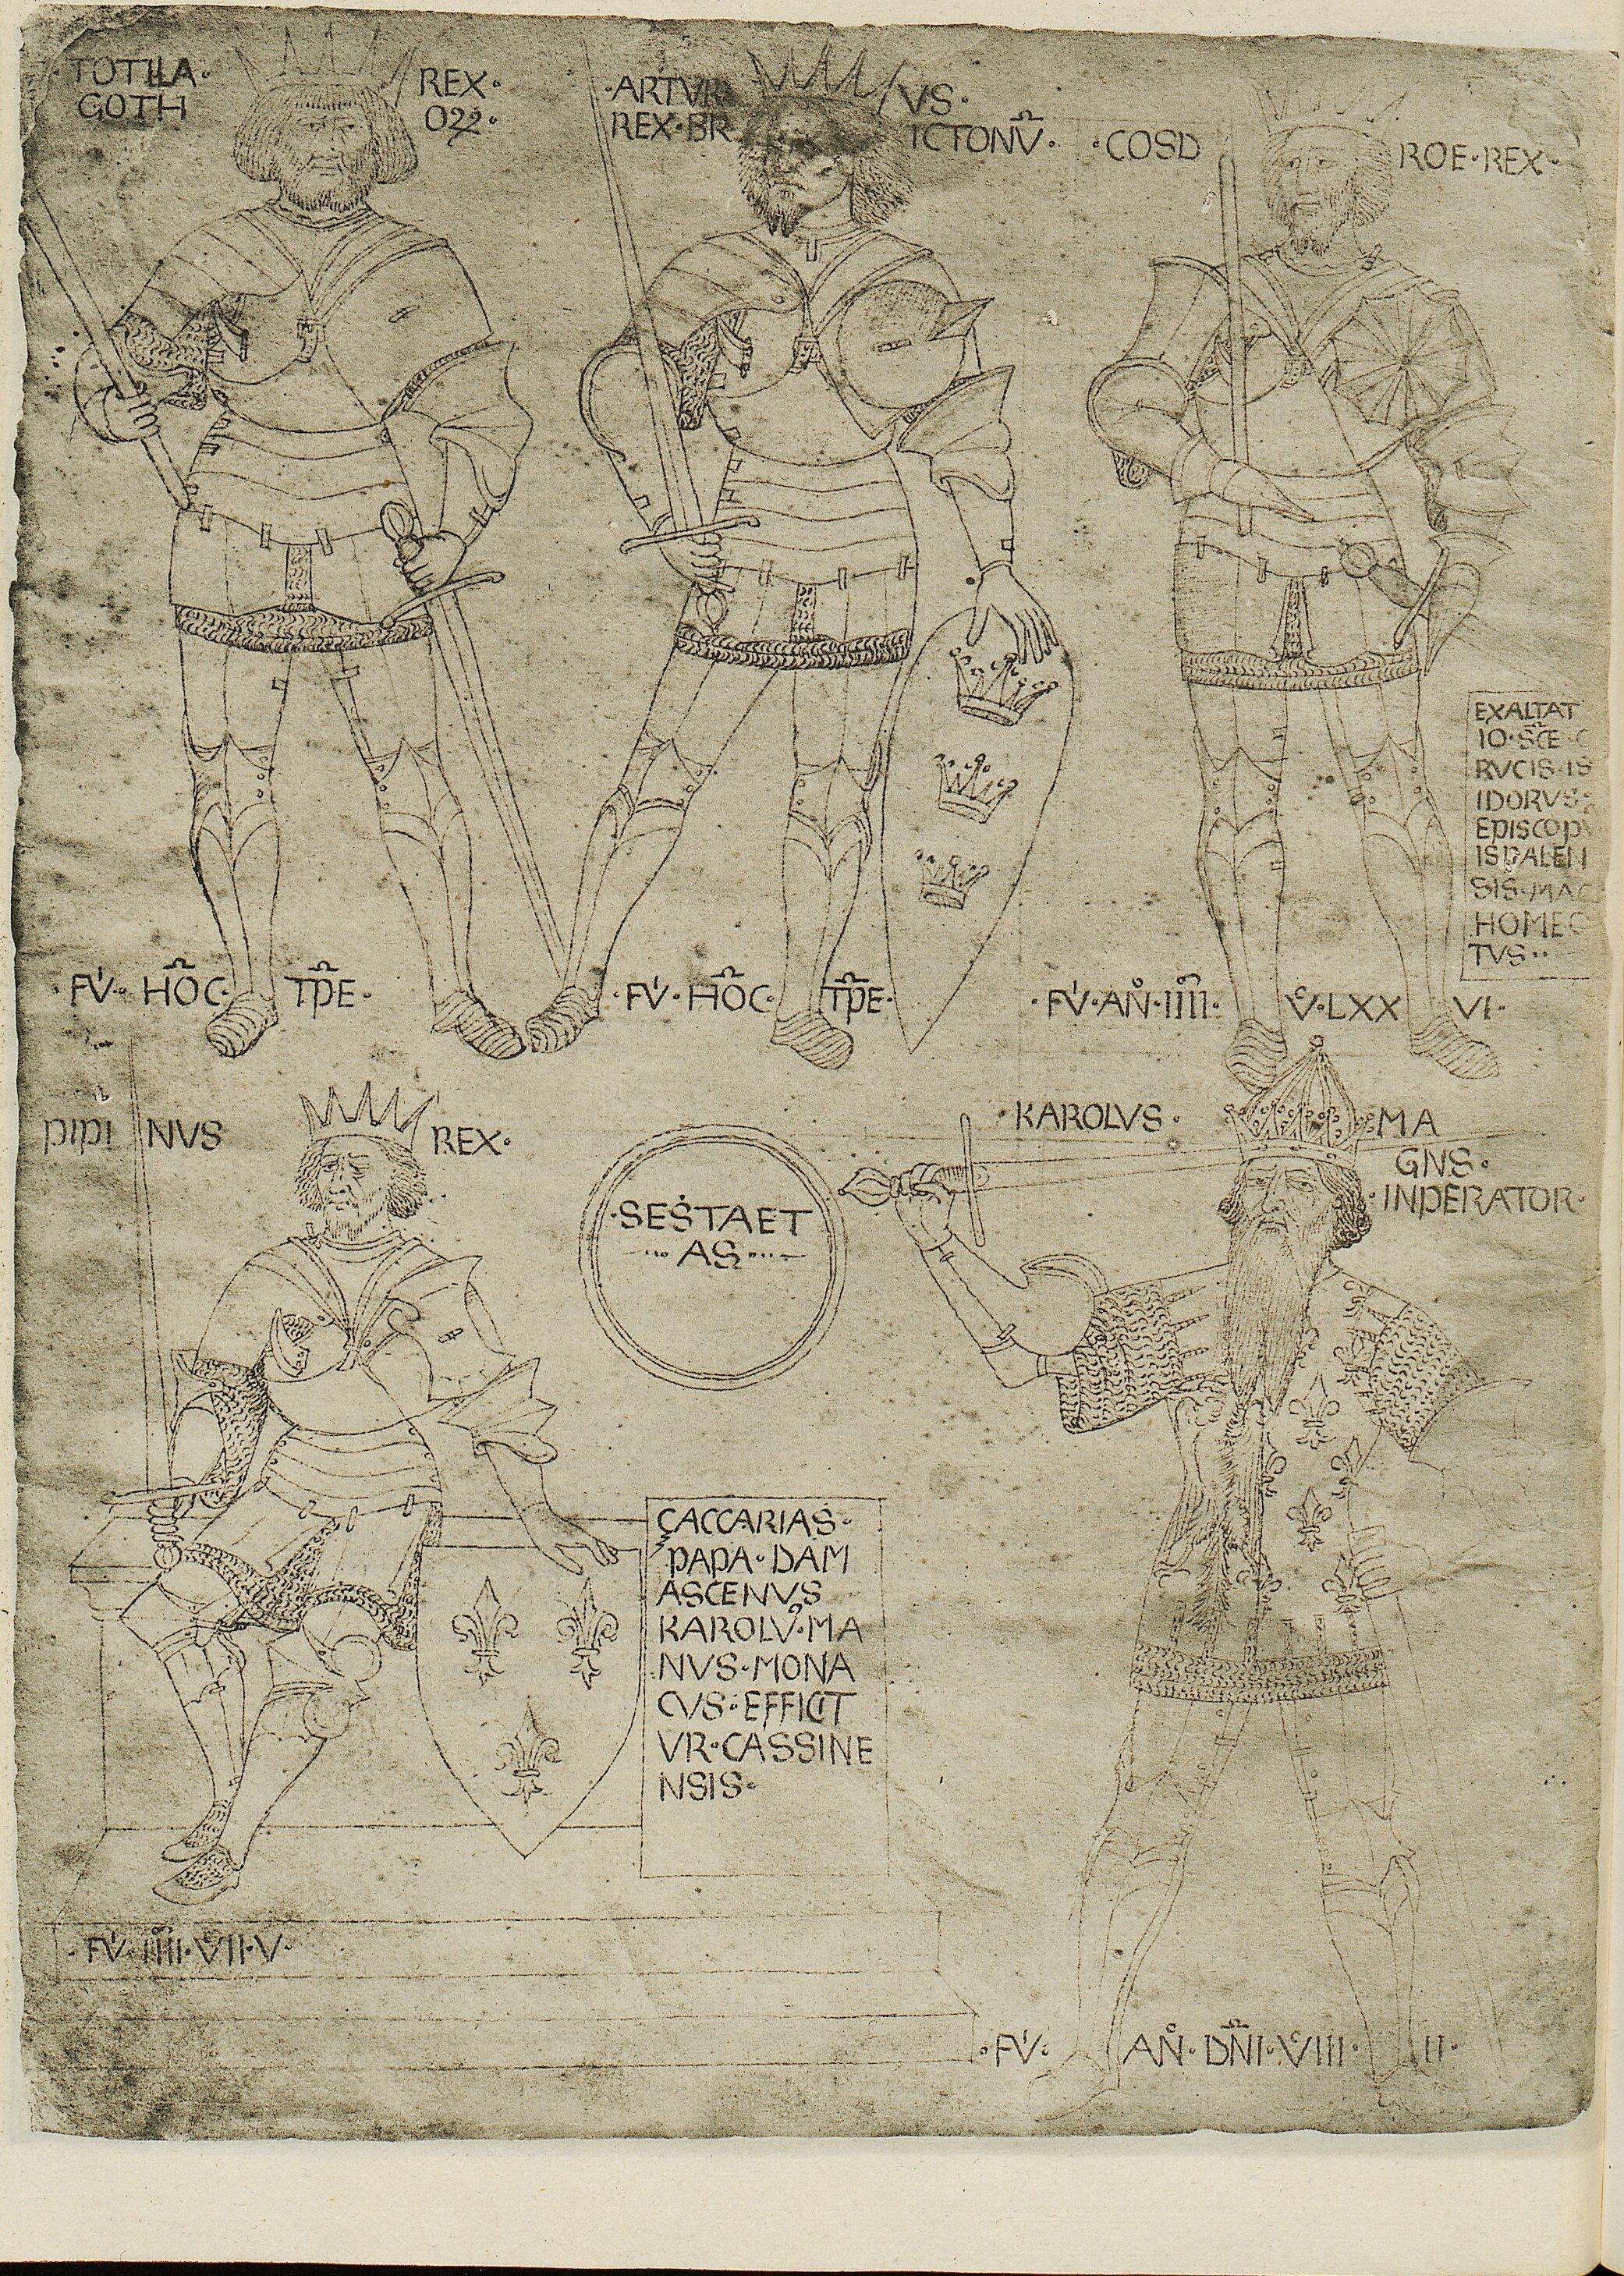 ·TOTILA· REX·
GOTH O22·
·ARTVR VS·
REX·BR ICTONV̄·
·COSD ROE·REX·
EXALTAT
IO·SC̄E·C
RVCIS·IS
IDORVS·
EPISCOPV
ISPALEN
SIS·MAC
HOMEC
TVS··
·FV· HŌC· TP̄E·
·FV·HŌC· TP̄E·
·FV·AN̊·IIII· V·LXX VI·
PIPI NVS REX·
·SESTAET
AS
·KAROLVS· MA
GNS·
·INPERATOR·
ÇACCARIAS·
PAPA·DAM
ASCENVS
KAROLV·MA
NVS·MONA
CVS·EFFICIT
VR·CASSINE
NSIS·
·FV·IIII·VII·V·
·FV· AN̊·DN̄I·VIII· II·